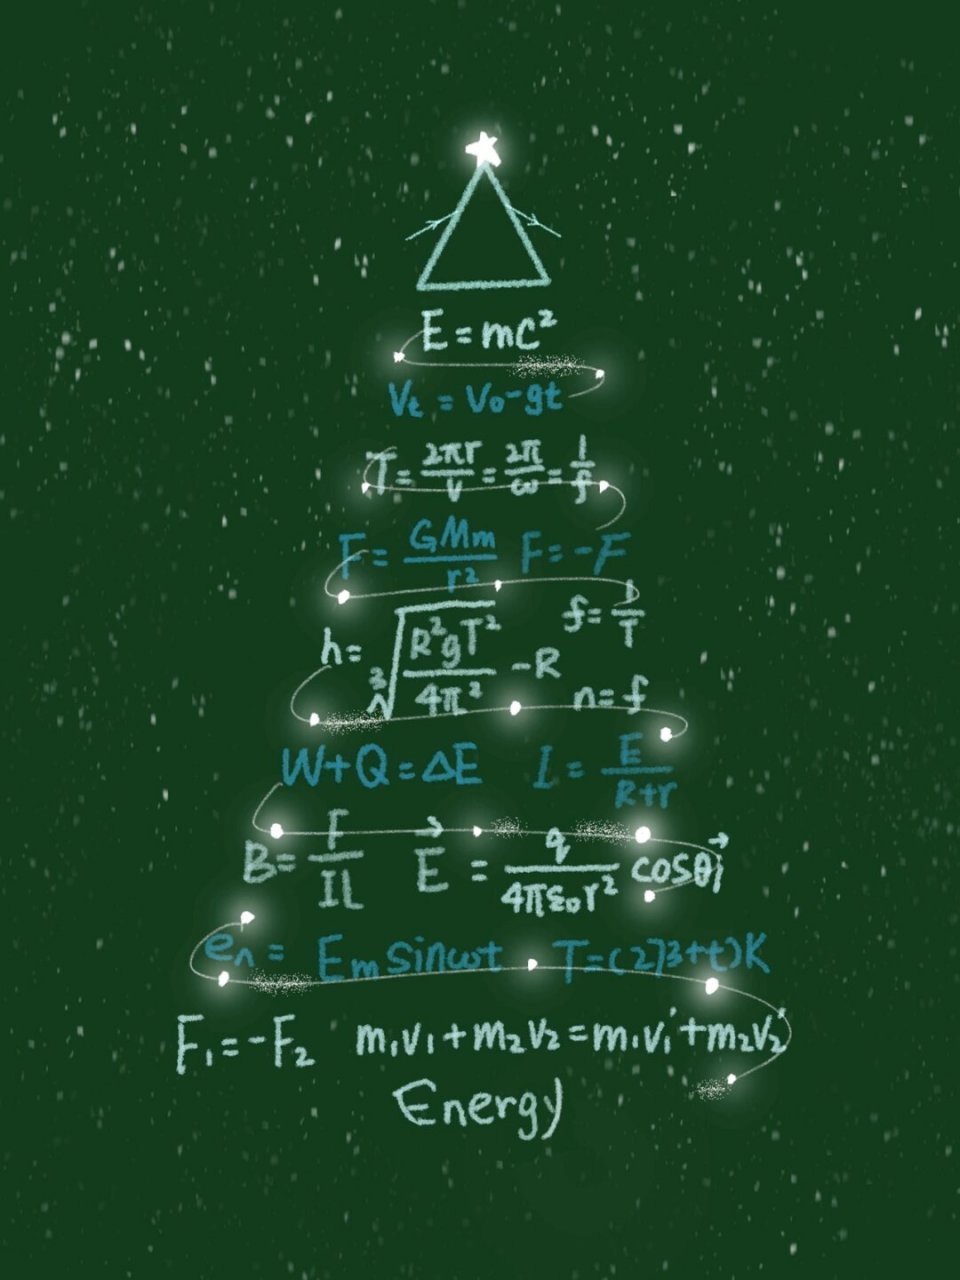 E = mc²
Vt = V0-gt
T = 2πr/V = 2π/ω = 1/f
F = GMm/r² F = -F
f = 1/T
h = ∛(R²gT²/4π²) - R
n = f
W+Q = ΔE I = E/(R+r)
B = F/IL E⃗ = q/(4πε0r²) cosθi⃗
en = Em sinωt T = (273+t)K
F1 = -F2 m1v1 + m2v2 = m1v1' + m2v2'
Energy